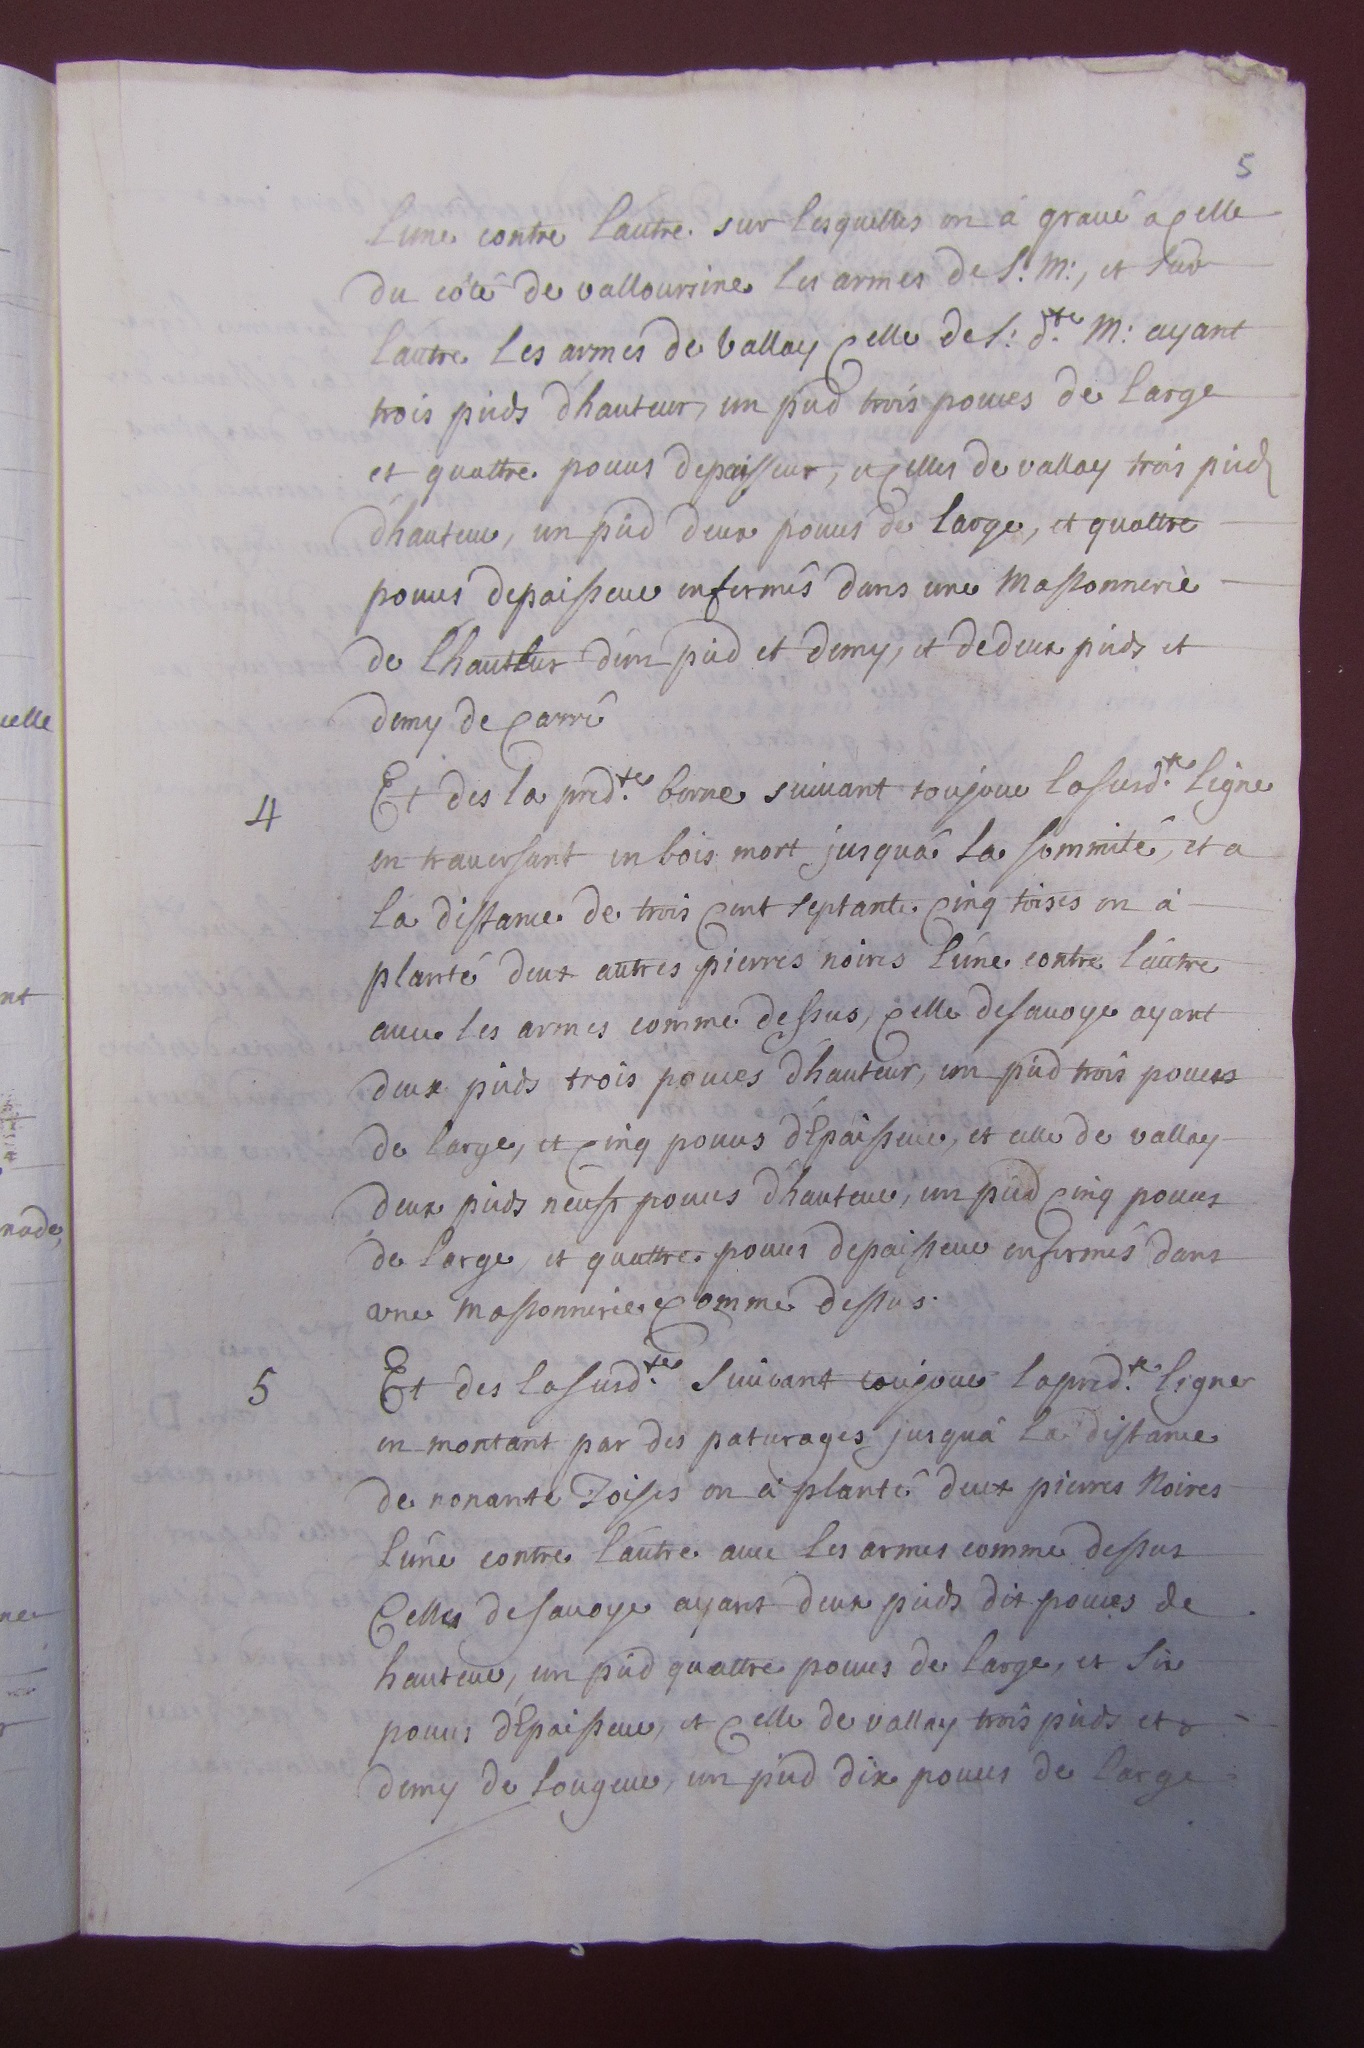 5
lúne contre lautre sur lesquelles on á graué a celle
du côté de valloursine les armes de S: M:, et sur
lautre les armes de Vallay celle de S: d.te M: ayant
trois pieds d'hauteur, un pied trois pouces de large
et quattre pouces depaisseur, et celles de vallay trois pieds
d'hauteur, un pied deux pouces de large, et quattre
pouces depaisseur enfermés dans une Massonnerie
de lhauteur d'un pied et demy, et de deux pieds et
demy de Carré
4
Et des la pred.te borne suiuant toujour la surd.te ligne
en trauersant un bois mort jusquá la sommité, et a
la distance de trois Cent septante Cinq toises on á
planté deux autres pierres noires lúne contre láutre
auec les armes comme dessus, Celle de sauoye ayant
deux pieds trois pouces d'hauteur, un pied trois pouces
de large, et Cinq pouces d'Epaisseur, et celle de vallay
deux pieds neuf pouces d'hauteur, un pied Cinq pouces
de large, et quattre pouces depaisseur enfermés dans
une Massonnerie Comme dessus.
5
Et des la surd.te suiuant toujour la pred.te ligne
en montant par des paturages jusquá la distance
de nonante Toises on á planté deux pierres Noires
lúne contre láutre auec les armes comme dessus
Celles de sauoye ayant deux pieds dix pouces de
hauteur, un pied quattre pouces de large, et six
pouces d'Epaisseur, et Celle de vallay trois pieds et
demy de longeur, un pied dix pouces de large